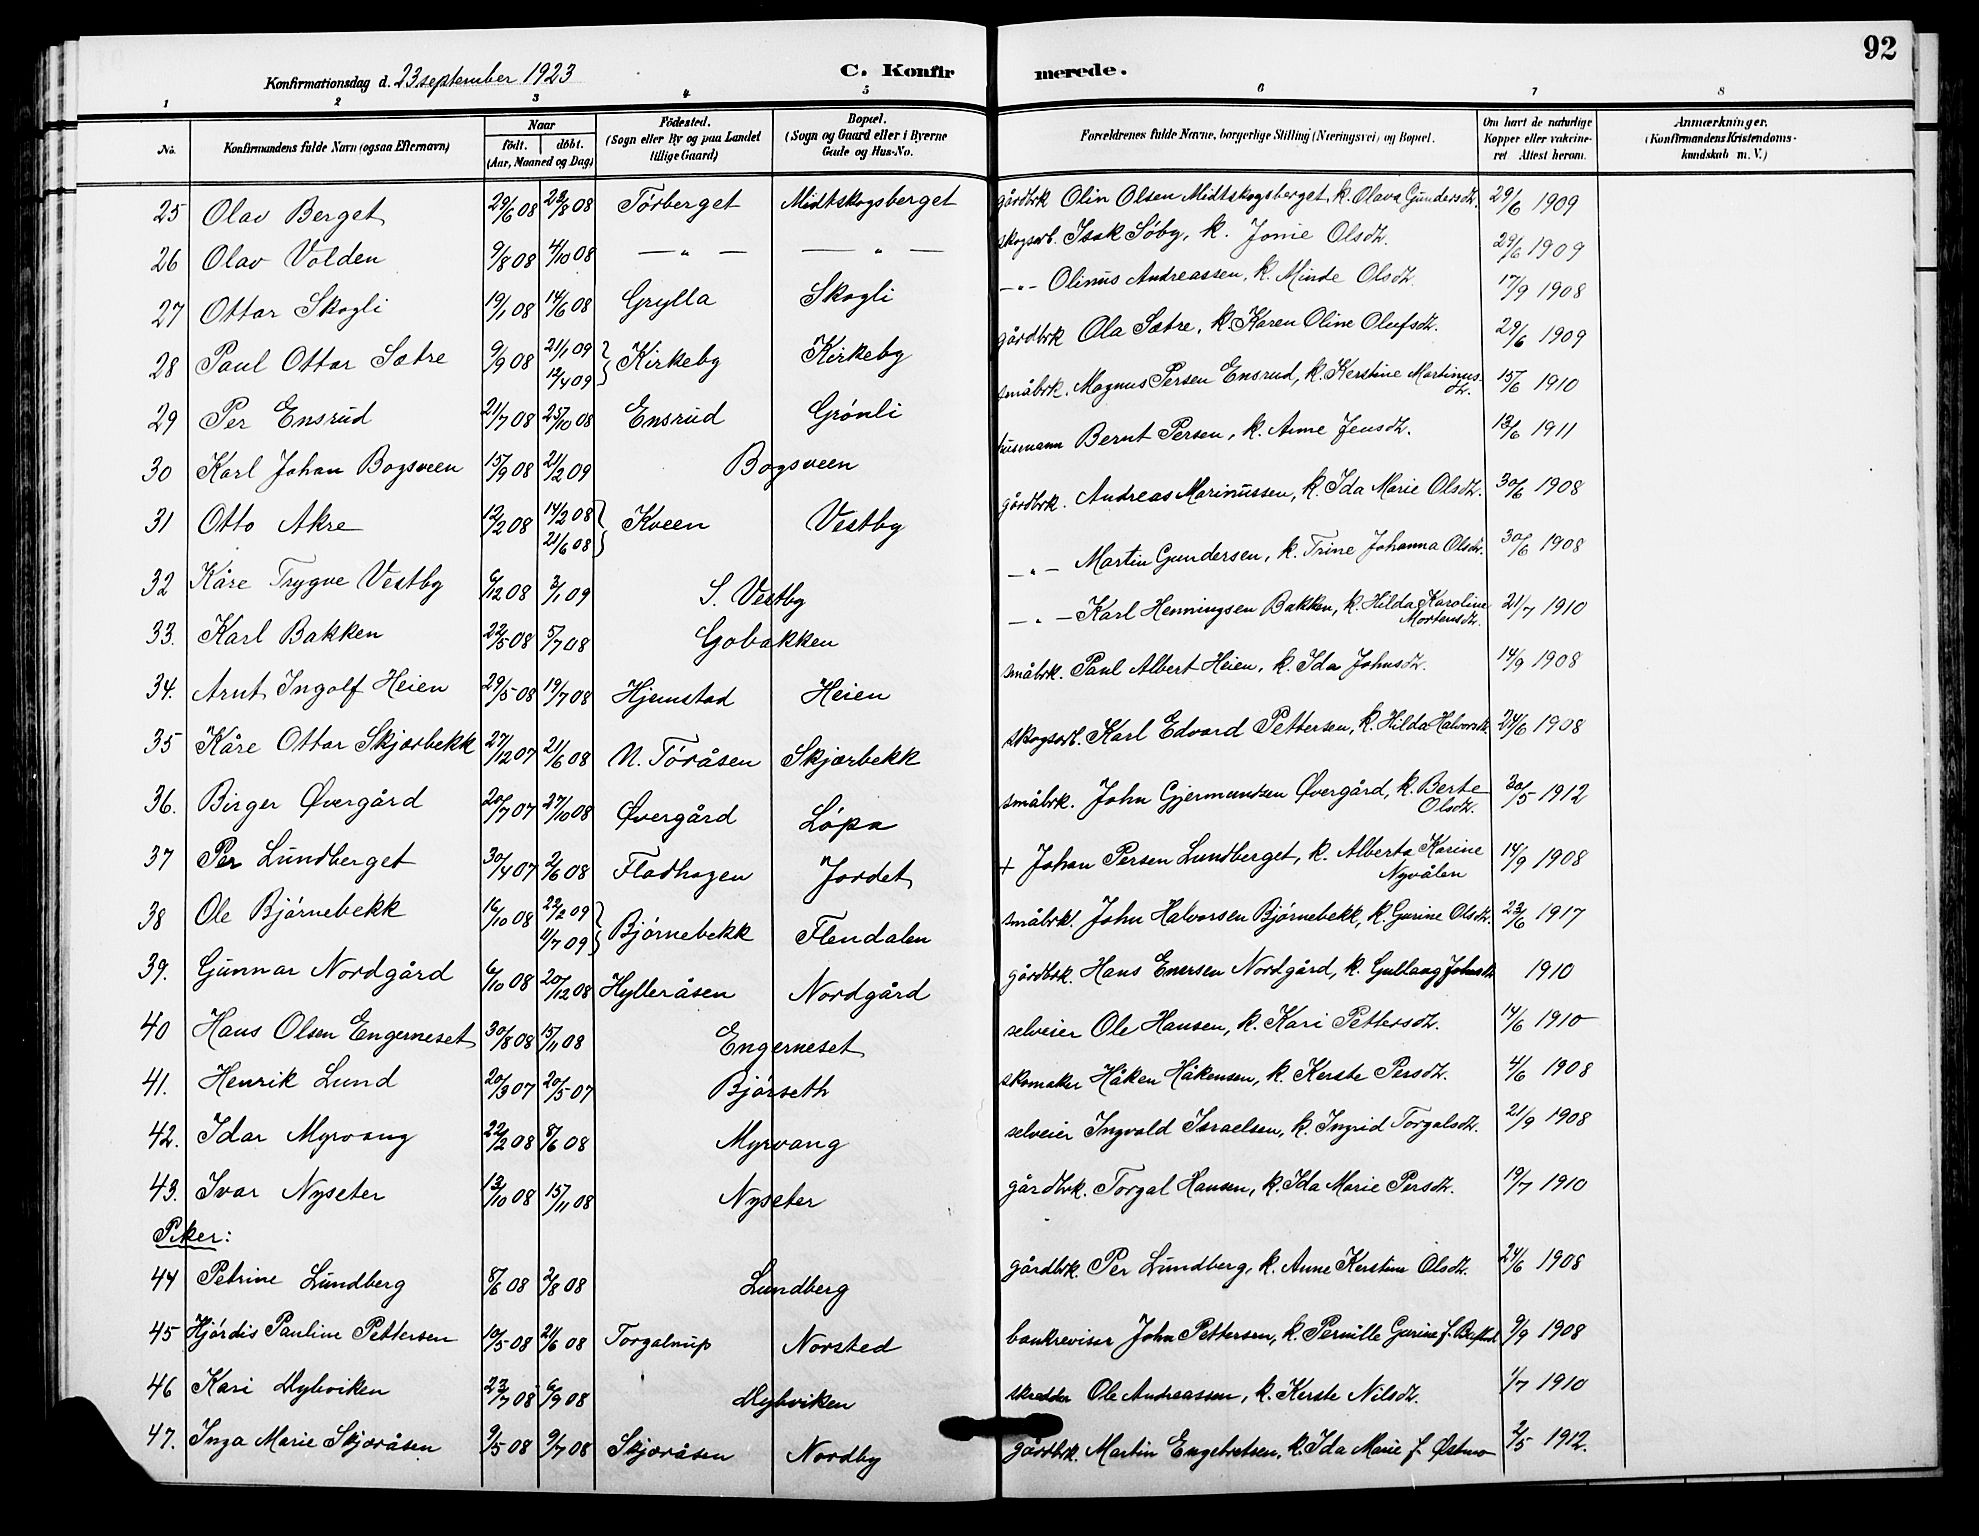 92
Konfirmationsdag d. 23 september 1923
C. Konfirmerede.
1 2 3 4 5 6 7 8
No. Konfirmandens fulde Navn (ogsaa Efternavn) Naar födt. döbt. (Aar, Maaned og Dag) Födested. (Sogn eller By og paa Landet tillige Gaard) Bopæl. (Sogn og Gaard eller i Byerne Gade og Hus-No. Forældrenes fulde Navne, borgerlige Stilling (Næringsvei) og Bopæl. Om havt de naturlige Kopper eller vakcineret Attest herom. Anmærkninger. (Konfirmandens Kristendomskundskab m. V.)
25 Olav Berget 29/6 08 23/8 08 Törberget Midtskogsberget gårdbrk Olin Olsen Midtskogsberget, k. Olava Gundersdt. 29/6 1909
26 Olav Volden 9/8 08 4/10 08 — " — — " — skogsarb. Isak Söby, k. Jonie Olsdt. 29/6 1909
27 Ottar Skogli 19/1 08 14/6 08 Grylla Skogli — " — Olinus Andreassen, k. Minde Olsdt. 17/9 1908
28 Paul Ottar Sætre 9/9 08 21/1 09 12/4 09 Kirkeby Kirkeby gårdbrk Ola Sætre, k. Karen Oline Olufsdt. 29/6 1909
29 Per Ensrud 21/7 08 25/10 08 Ensrud Grönli småbrk. Magnus Persen Ensrud, k. Kerstine Martinusdt. 15/6 1910
30 Karl Johan Bogsveen 15/9 08 21/2 09 Bogsveen husmann Bernt Persen, k. Anne Jensdt. 13/6 1911
31 Otto Akre 12/2 08 14/2 08 21/6 08 Kveen Vestby gårdbrk. Andreas Marinussen, k. Ida Marie Olsdt. 30/6 1908
32 Kåre Trygve Vestby 6/12 08 3/1 09 S. Vestby — " — Martin Gundersen, k. Trine Johanna Olsdt. 30/6 1908
33. Karl Bakken 22/5 08 5/7 08 Gobakken — " — Karl Henningsen Bakken, k. Hilda Karoline Mortensdt. 21/7 1910
34. Arnt Ingolf Heien 29/5 08 19/7 08 Hjemstad Heien småbrk. Paul Albert Heien, k. Ida Johnsdt. 14/9 1908
35 Kåre Ottar Skjærbekk 27/12 07 21/6 08 N. Töråsen Skjærbekk skogsarb. Karl Edvard Pettersen, k. Hilda Halvorsdt. 24/6 1908
36. Birger Övergård 20/7 07 27/10 08 Övergård Löpa småbrk. John Gjermundsen Övergård, k. Berte Olsdt. 30/5 1912
37 Per Lundberget 30/4 07 2/6 08 Fladhagen Jordet + Johan Persen Lundberget, k. Alberta Karine Nyvålen 14/9 1908
38 Ole Björnebekk 16/10 08 22/2 09 4/7 09 Björnebekk Flendalen småbrk. John Halvorsen Björnebekk, k. Gurine Olsdt. 23/6 1917
39. Gunnar Nordgård 6/10 08 20/12 08 Hylleråsen Nordgård gårdbrk. Hans Enersen Nordgård, k. Gullaug Johnsdt 1910
40 Hans Olsen Engerneset 30/8 08 15/11 08 Engerneset selveier Ole Hansen, k. Kari Pettersdt. 14/6 1910
41. Henrik Lund 20/3 07 20/5 07 Björseth skomaker Håken Håkensen, k. Kerste Persdt. 4/6 1908
42. Idar Myrvang 22/2 08 8/6 08 Myrvang selveier Ingvald Israelsen, k. Ingrid Torgalsdt. 21/9 1908
43. Ivar Nyseter 13/10 08 15/11 08 Nyseter gårdbrk. Torgal Hansen, k. Ida Marie Persdt. 19/7 1910
Piker:
44 Petrine Lundberg 8/6 08 2/8 08 Lundberg gårdbrk. Per Lundberg, k. Anne Kerstine Olsdt. 24/6 1908
45 Hjördis Pauline Pettersen 10/5 08 21/6 08 Torgalrup Norsted bankrevisor John Pettersen, k. Pernille Gurine f. 9/9 1908
46 Kari Nybviken 23/7 08 6/9 08 Nybviken skrædder Ole Andreassen, k. Kerste Nilsdt. 1/7 1910
47. Inga Marie Skjæråsen 9/5 08 9/7 08 Skjæråsen Nordby gårdbrk. Martin Engebretsen, k. Ida Marie f. Östmo 2/5 1912.